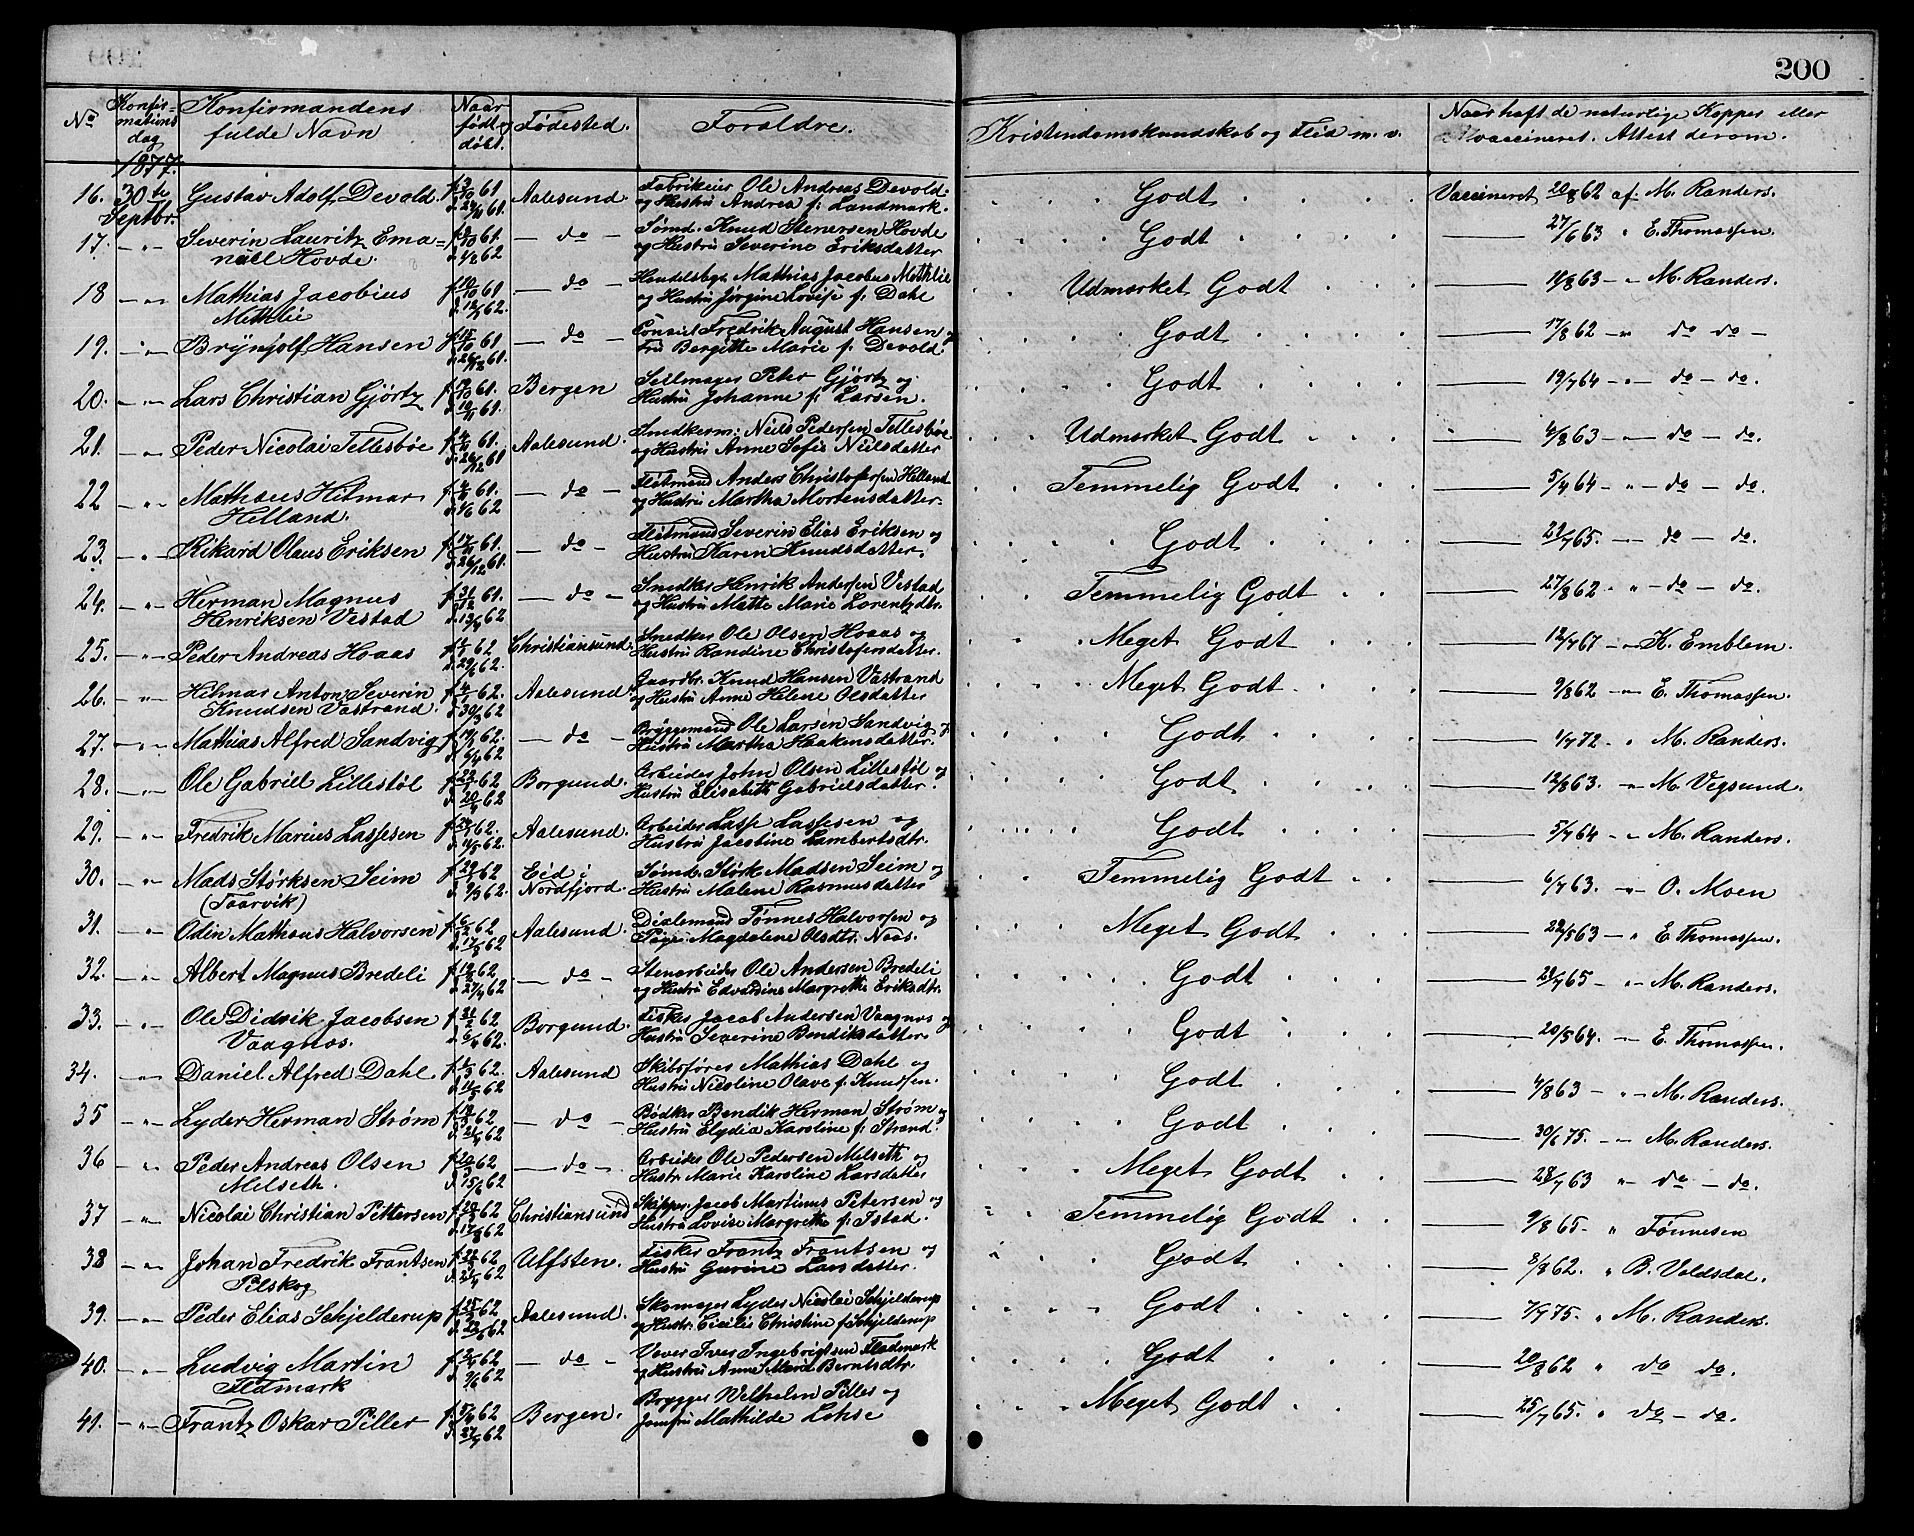 200
No Konfirmations dag Konfirmandens fulde Navn Naar født og døbt. Fødested. Forældre. Kristendomskundskab og Flid m. v. Naar haft de naturlige Kopper eller vaccineret. Attest derom.
1877.
16. 30te Septbr. Gustav Adolf Devold. f. 3/10 61 Aalesund. Fabrikeier Ole Andreas Devold og Hustru Andrea f: Landmark. Godt Vaccineret 20/8 62 af M. Randers.
17. -"- Severin Lauritz Emanuel Hovde. 61 d. 1/2 62 — do — Sømd. Knud Stenersen Hovde og Hustru Severine Eriksdatter Godt 27/6 63 " E. Thomassen.
18 -"- Mathias Jacobius Methlie f. 10/10 61 62. — do — Handelsbg. Mathias Jacobus Methlie og Hustru Jørgine Lovise f: Dahl Udmærket Godt 11/8 63 -"- M. Randers.
19. -"- Brynjolf Hansen f. 15/10 61 d. 26/12 61. — do — Consul Fredrik August Hansen og Fru Bergitte Marie f: Devold. Godt 17/8 62 -"- do do -
20. -"- Lars Christian Gjørtz f. 19/10 61. d. 10/11 61. Bergen Sellmager Peter Gjørtz og Hustru Johanne f: Larsen. Godt 19/7 64 -"- do - do.
21. -"- Peder Nicolai Tellesbøe 61. d. 26/12 61 Aalesund. Snedkerm: Niels Pedersen Tellesbøe og Hustru Anne Sofie Nielsdatter Udmærket Godt 4/8 63 -"- do - do.
22 -"- Mathæus Hilmar Helland. 61. 62 — do — Fløtmand Anders Christofersen Helland og Hustru Martha Mortensdatter. Temmelig Godt 5/7 64 -"- do - do.
23. -"- Rikard Olaus Eriksen f. 17/11 61. d. 26/12 61. — do — Fløtmand Severin Elias Eriksen og Hustru Karen Knudsdatter. Godt 21/7 65. -"- do - do.
24. -"- Herman Magnus Henriksen Vestad f. 31/12 61. 62 — do — Snedker Henrik Andersen Vestad og Hustru Mette Marie Lorentzdtr. Temmelig Godt 27/8 62 " - do - do.
25. -"- Peder Andreas Hoaas 62 62. Christiansund. Snedker Ole Olsen Hoaas og Hustru Randine Christofersdatter. Meget Godt 12/7 67 -"- K. Emblem.
26. -"- Hilmar Anton Severin Knudsen Vastrand. 62. d. 30/3 62 Aalesund. Gaardbr. Knud Hansen Vastrand og Hustru Anne Helene Olsdatter Meget Godt 9/8 62 -"- E. Thomassen.
27. -"- Mathias Alfred Sandvig 62. 62 — do — Bryggemand Ole Larsen Sandvig og Hustru Martha Haakensdatter. Godt 1/7 72 - " M. Randers.
28. -"- Ole Gabriel Lillestøl 62 62 Borgund. Arbeider John Olsen Lillestøl og Hustru Elisabeth Gabrielsdatter. Godt 12/8 63. -"- M. Vegsund.
29. -"- Fredrik Marius Lassesen 62. 62. Aalesund. Arbeider Lasse Lassesen og Hustru Jacobine Lambertsdtr. Godt 5/7 64 -"- M. Randers.
30. -"- Mads Størksen Seim (Taarvik) 62 d. 9/3 62. Eid i Nordfjord. Sømd. Størk Madsen Seim og Hustru Malene Rasmusdatter Temmelig Godt 6/7 63. -"- O. Moen
31. -"- Odin Mathæus Halvorsen f. 6/2 62 62 Aalesund. Dixlemand Tønnes Halvorsen og Pige Magdalene Olsdtr. Naas. Meget Godt 22/5 63 - " E Thomassen.
32. -"- Albert Magnus Bredeli 62 d. 27/4 62 — do — Stenarbeider Ole Andersen Bredeli og Hustru Edvardine Margrethe Eriksdtr. Godt 21/7 65 - " - M. Randers.
33. -"- Ole Didrik Jacobsen Vaagnæs. f. 21/2 62 62. Borgund. Fisker Jacob Andersen Vaagnæs og Hustru Severine Bendiksdatter Godt 20/5 64. -"- E. Thomassen.
34. -"- Daniel Alfred Dahl. 62 62 Aalesund Skibsfører Mathias Dahl og Hustru Nicoline Olave f: Knudsen. Godt 4/8 63 -"- M. Randers.
35 -"- Lyder Herman Strøm 62 62 — do — Bødker Bendik Herman Strøm og Hustru Elydia Karoline f: Strand. Godt 30/6 75. -"- M. Randers.
36 -"- Peder Andreas Olsen Melseth. f. 20/3 62 d. 15/6 62 — do — Arbeider Ole Pedersen Melseth og Hustr. Marie Karoline Larsdatter Meget Godt 28/7 63 " do - do.
37 -"- Nicolai Christian Pettersen 62 62 Christiansund Skipper Jacob Martinus Petersen og Hustru Lovise Margrethe f: Istad. Temmelig Godt 9/8 65. " Tønnesen
38 -"- Johan Fredrik Frantsen Pilskog 62 62 Ulfsten. Fisker Frantz Frantsen og Hustru Gurine Larsdatter. Godt 8/8 62. " B. Voldsdal.
39. -"- Peder Elias Schjelderup 62 62 Aalesund. Skomager Lyder Nicolai Schjelderup og Hustr. Cicilie Christine f: Schjelderup Godt 7/7 75. " M. Randers.
40. -"- Ludvig Martin Fladmark 62 62 — do — Væver Iver Ingebrigtsen Fladmark og Hustru Anne Marit Berntsdtr. Godt 20/8 62 " do do.
41. -"- Frantz Oskar Piller 62 62 Bergen. Brygger Wilhelm Piller og Jomfru Mathilde Lohse Meget Godt 25/7 65. " do - do.